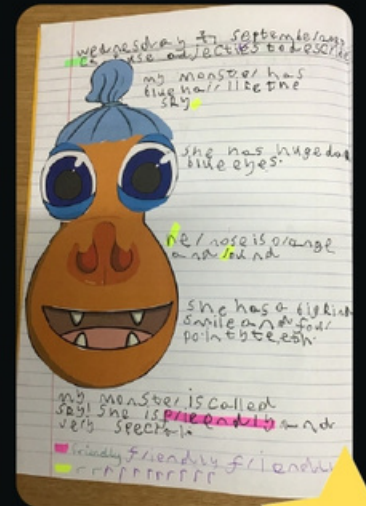 wednesday September
use adjecties to descri
my monster has
blue hair like the
sky
she has huge dar
blue eyes.
her nose is orange
and round
she has a big kind
smile and four
pointy teeth.
my monster is called
she is and
very special.
friendly friendly friendly
r r r r r r r r r